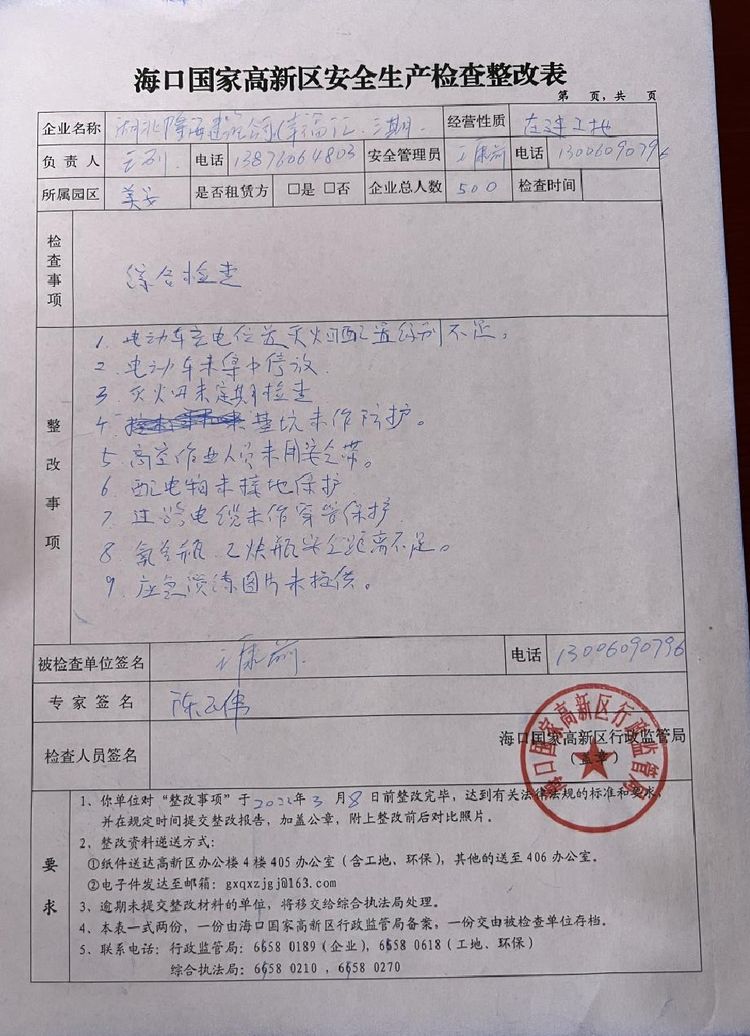 海口国家高新区安全生产检查整改表
第 页，共 页
企业名称 湖北隆海建筑公司幸福江三期 经营性质 在建工地
负责人 王列 电话 13876064803 安全管理员 王康前 电话 13006090796
所属园区 美安 是否租赁方 □是 □否 企业总人数 500 检查时间
检查事项 综合检查
整改事项
1. 电动车充电位置灭火器配置级别不足。
2. 电动车未集中停放
3. 灭火器未定期检查
4. 基坑未作防护。
5. 高空作业人员未用安全带。
6. 配电箱未接地保护
7. 过路电缆未作穿管保护
8. 氧气瓶、乙炔瓶安全距离不足。
9. 应急演练图片未提供。
被检查单位签名 王康前 电话 13006090796
专家签名 陈正伟
海口国家高新区行政监管局
检查人员签名 （盖章）
海口国家高新区行政监管局
要求
1、你单位对“整改事项”于2022年3月8日前整改完毕，达到有关法律法规的标准和要求，
并在规定时间提交整改报告，加盖公章，附上整改前后对比照片。
2、整改资料递送方式：
①纸件送达高新区办公楼4楼405办公室（含工地、环保），其他的送至406办公室。
②电子件发达至邮箱：gxqxzjgj@163.com
3、逾期未提交整改材料的单位，将移交给综合执法局处理。
4、本表一式两份，一份由海口国家高新区行政监管局备案，一份交由被检查单位存档。
5、联系电话：行政监管局：6658 0189（企业），6658 0618（工地、环保）
综合执法局：6658 0210，6658 0270